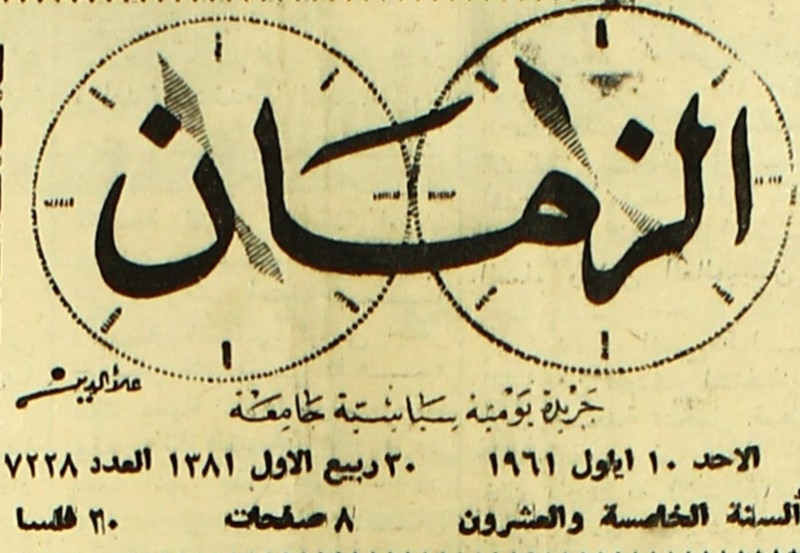 الزمان
علاءالدين
جريدة يومية سياسية جامعة
الاحد ١٠ ايلول ١٩٦١ ٣٠ ربيع الاول ١٣٨١ العدد ٧٢٢٨
السنة الخامسة والعشرون ٨ صفحات ٢٠ فلسا